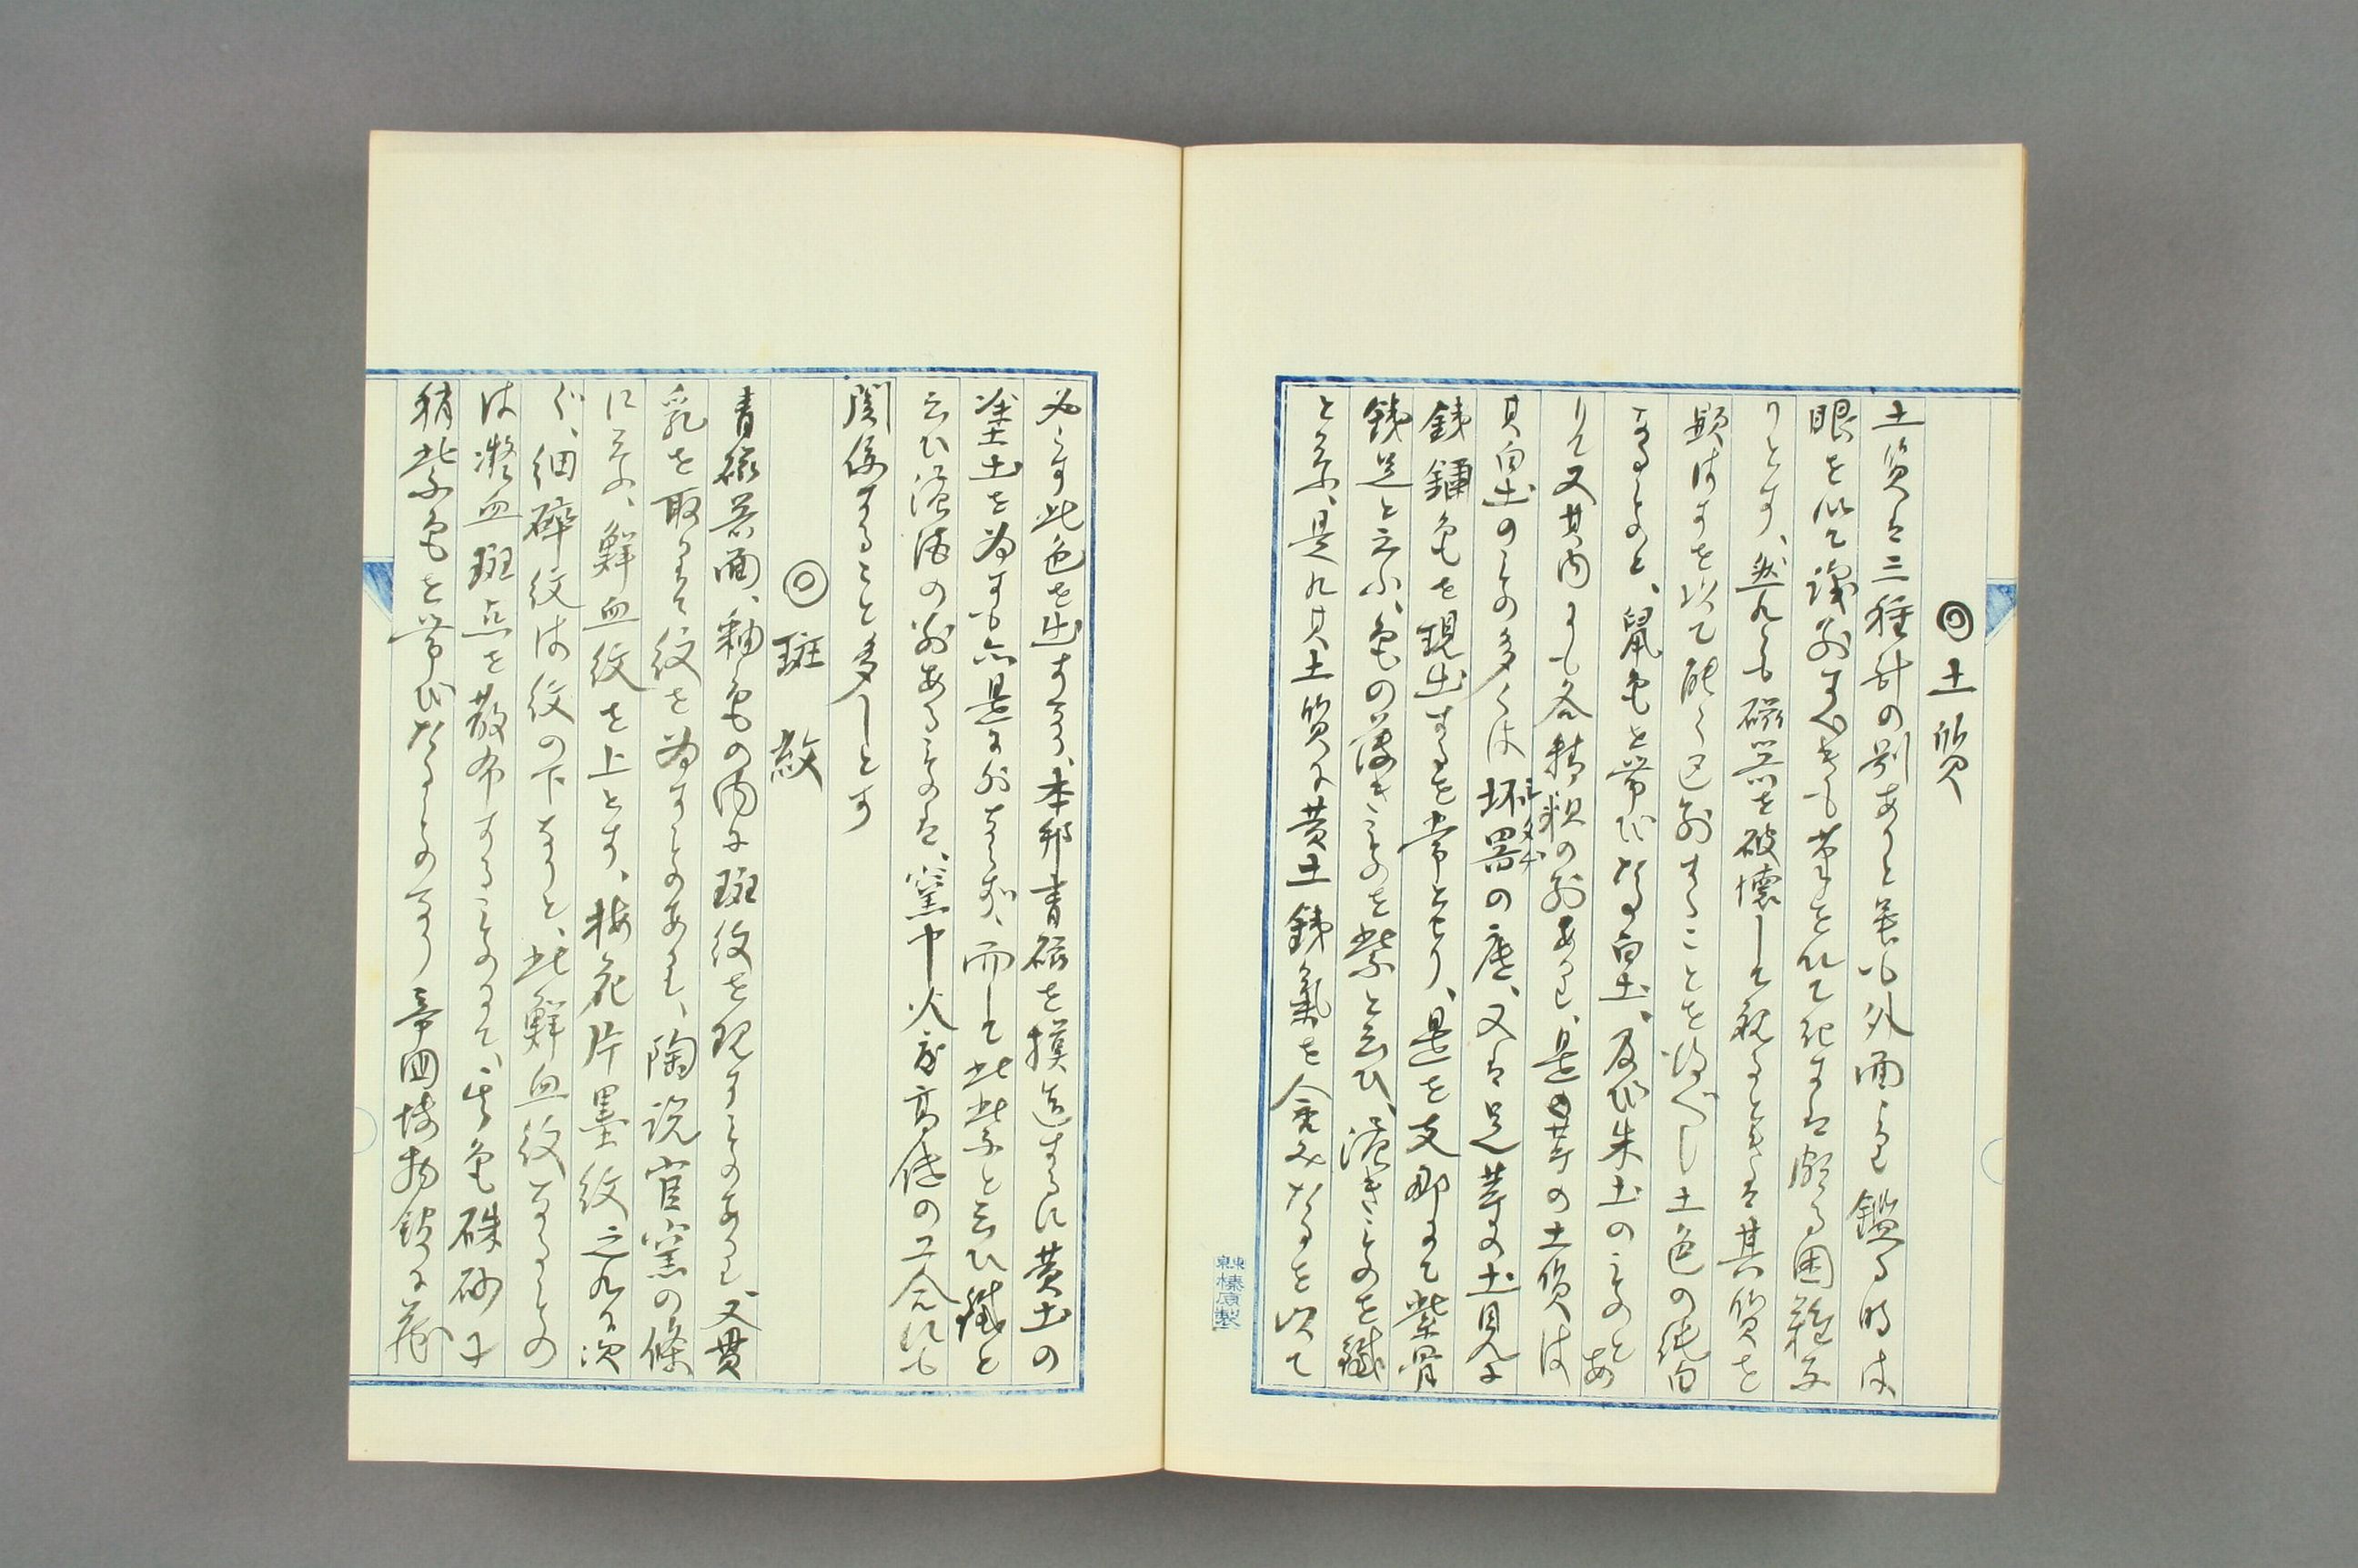 ◎土質
土質は三種計の別あれと雖も外面より鑑る時は
眼を以て識別すべきも筆を以て記するは頗る困難な
りとす、然れども磁器を破壊して視るときは其質を
顕はすを以て能く区別することを得べし土色の純白
なるものと、鼠色を帯びたる白土、及び朱土のものとあ
りて又其内にも各精粗の別あり、是等の土質は
其白土のもの多くは坏器の底、又は足等の土見に
銕錆色を現出するを常とせり、是を支那にて紫骨
銕足と云ふ、色の薄きものを紫と云ひ、濃きものを鐵
と云ふ、是れ其土質に黄土銕氣を含みたるを以て
為に此色を出すなり、本邦青磁を摸造するに黄土の
塗土を為すも亦是に外ならず、而して此紫と云ひ鐵と
云ひ濃薄の別あるものは、窯中火度高低の工合にも
関係すること多しとす
◎斑紋
青磁器面、釉色の内に斑紋を現すものあり、又貫
乳を取りて紋を為すものあり、陶説官窯の條
に云ふ、鮮血紋を上とす、梅花片墨紋之れに次
ぐ、細砕紋は紋の下なりと、此鮮血紋なるもの
は凝血斑点を散布するものにて、其色硃砂に
稍紫色を帯びたるものなり、帝国博物館に蔵